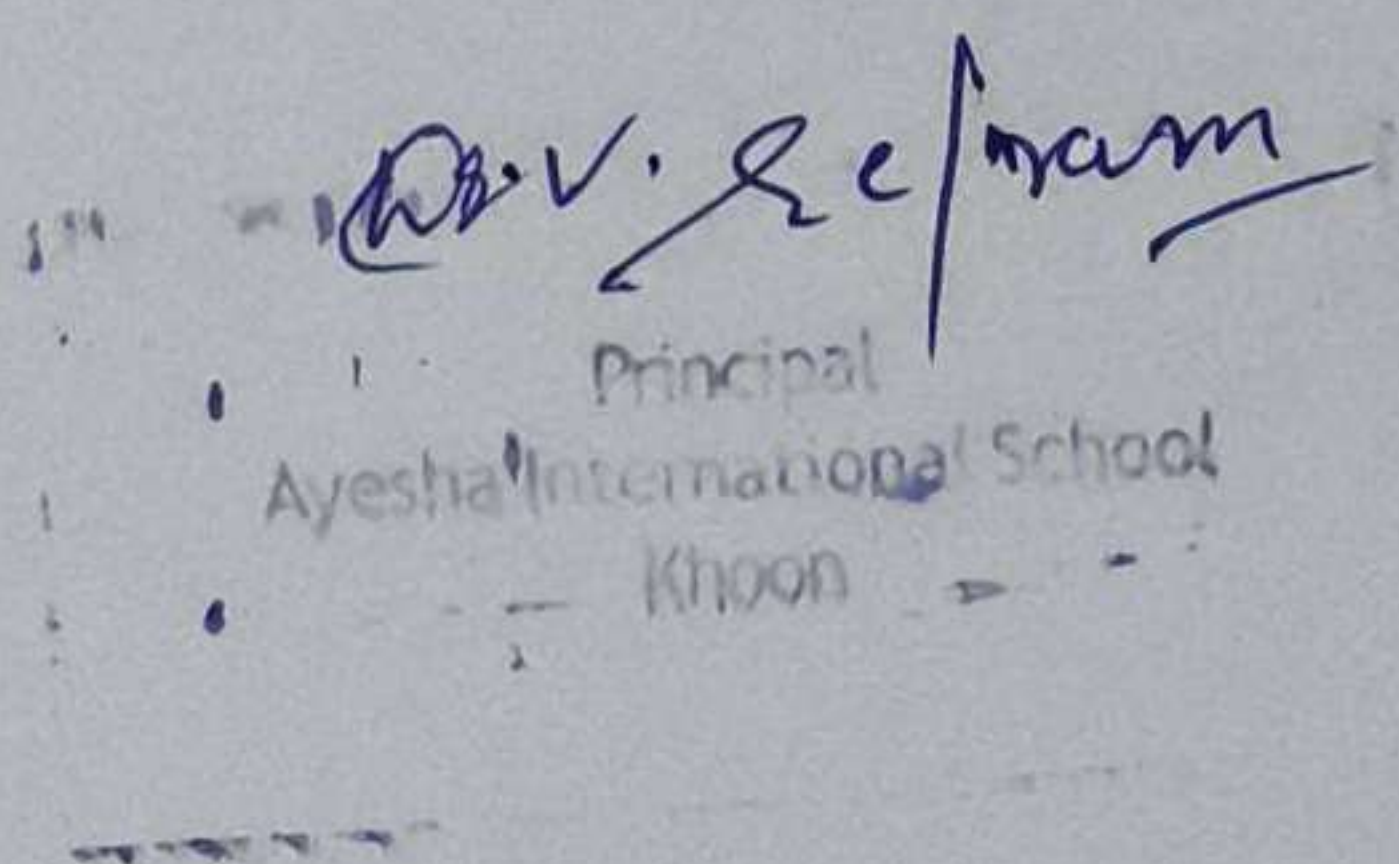 Dr. V. Selvam
Principal
Ayesha International School
Khoon